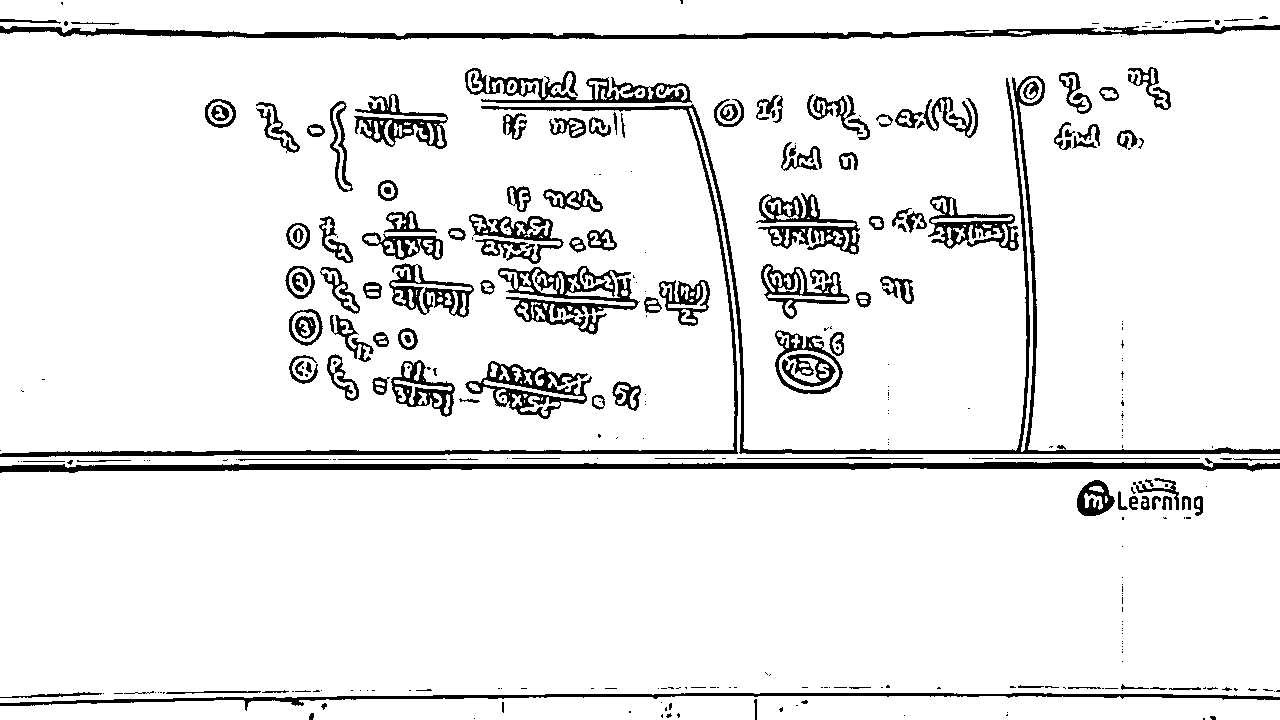 Binomial Theorem
② ⁿCᵣ = { n! / r!(n-r)! if n≥r
0 if n<r
① ⁷C₂ = 7! / 2!×5! = 7×6×5! / 2×5! = 21
② ⁿC₂ = n! / 2!(n-2)! = n×(n-1)×(n-2)! / 2!×(n-2)! = n(n-1) / 2
③ ¹²C₁₇ = 0
④ ⁸C₃ = 8! / 3!×5! = 8×7×6×5! / 6×5! = 56
⑤ If ⁽ⁿ⁺¹⁾C₃ = 2×(ⁿC₂)
find n
(n+1)! / 3!×(n-2)! = 2× n! / 2!×(n-2)!
(n+1) n! / 6 = n!
n+1 = 6
n=5
⑥ ⁿC₃ = ⁿ⁻¹C₂
find n,
m Learning